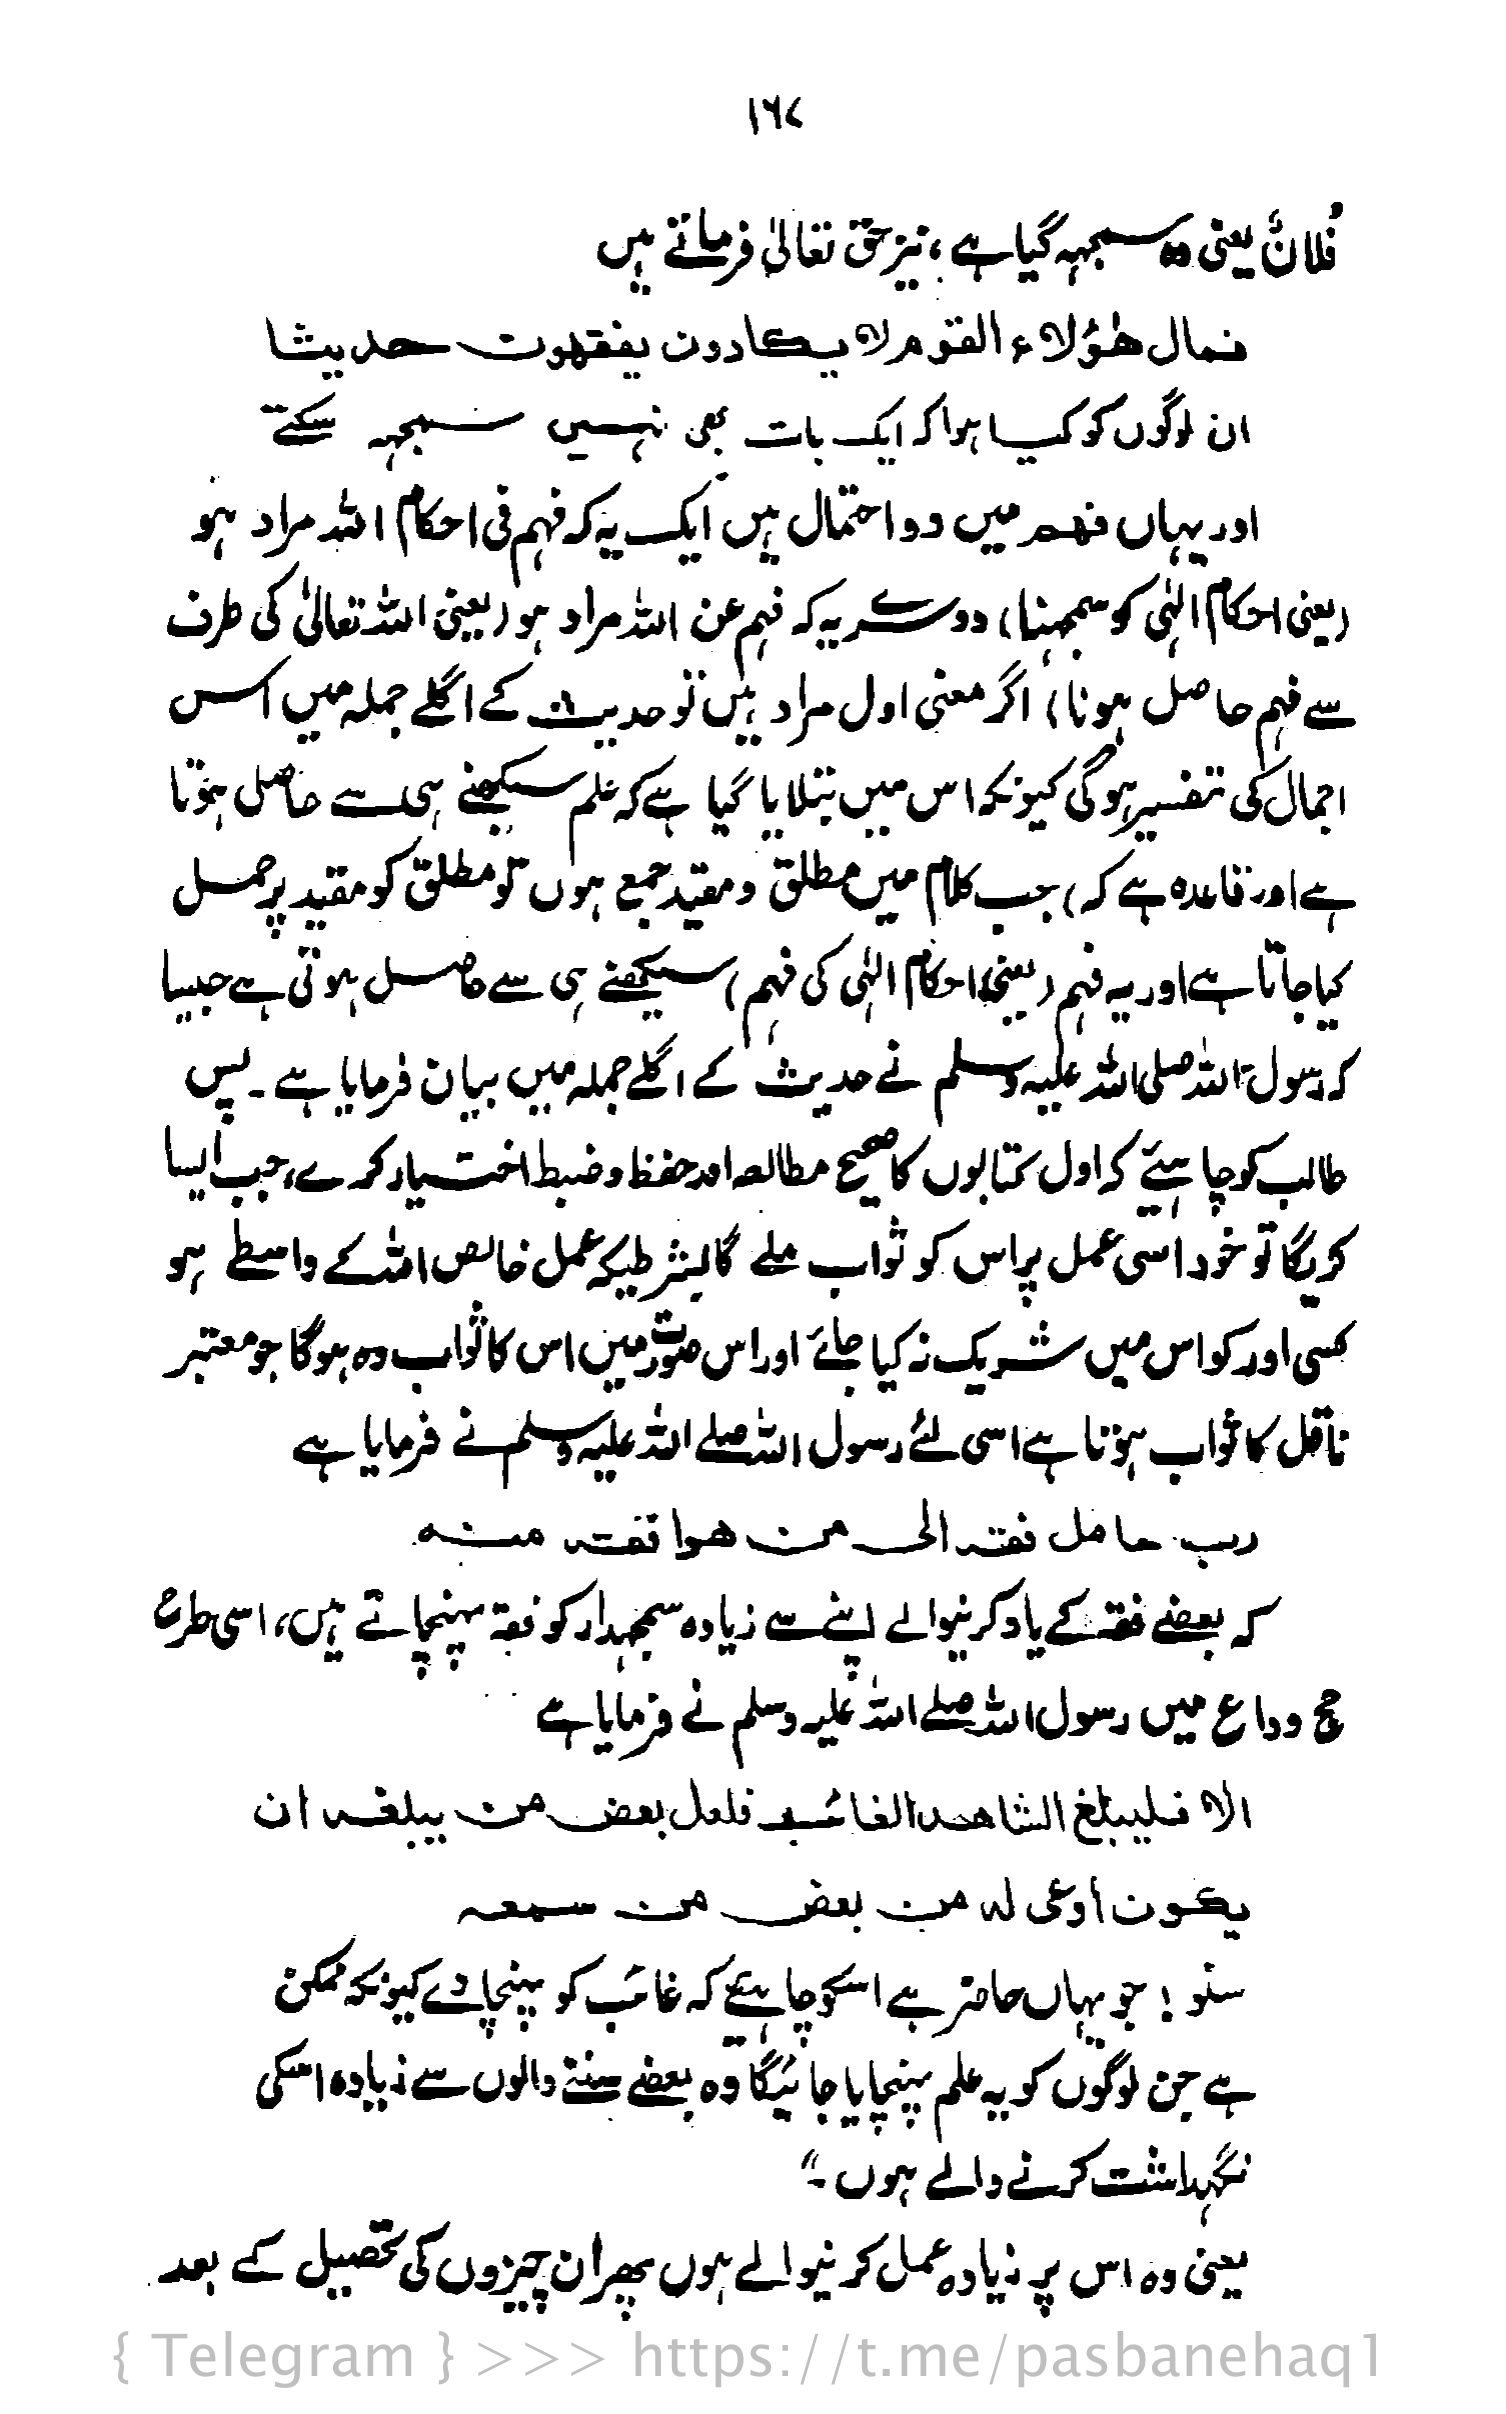 ۱۶۷
فُلانٌ یعنی وہ سمجہہ گیا ہے، نیز حق تعالیٰ فرماتے ہیں
فمال ھٰؤلاء القوم لا یکادون یفقھون حدیثا
ان لوگوں کو کیا ہوا کہ ایک بات بھی نہیں سمجہہ سکتے
اور یہاں فہم میں دو احتمال ہیں ایک یہ کہ فہم فی احکام اللہ مراد ہو
(یعنی احکام الٰہی کو سمجہنا) دوسرے یہ کہ فہم عن اللہ مراد ہو (یعنی اللہ تعالیٰ کی طرف
سے فہم حاصل ہونا) اگر معنی اول مراد ہیں تو حدیث کے اگلے جملہ میں اس
اجمال کی تفسیر ہوگی کیونکہ اس میں بتلایا گیا ہے کہ علم سیکھنے ہی سے حاصل ہوتا
ہے اور قاعدہ ہے کہ) جب کلام میں مطلق و مقید جمع ہوں تو مطلق کو مقید پر حمل
کیا جاتا ہے اور یہ فہم (یعنی احکام الٰہی کی فہم) سیکھنے ہی سے حاصل ہوتی ہے جیسا
کہ رسول اللہ صلی اللہ علیہ وسلم نے حدیث کے اگلے جملہ میں بیان فرمایا ہے۔ پس
طالب کو چاہیئے کہ اول کتابوں کا صحیح مطالعہ اور حفظ و ضبط اختیار کرے، جب ایسا
کریگا تو خود اسی عمل پر اس کو ثواب ملے گا بشرطیکہ عمل خالص اللہ کے واسطے ہو
کسی اور کو اس میں شریک نہ کیا جائے اور اس صورت میں اس کا ثواب وہ ہوگا جو معتبر
ناقل کا ثواب ہوتا ہے اسی لئے رسول اللہ صلے اللہ علیہ وسلم نے فرمایا ہے
رب حامل فقہ الی من ھو افقہ منہ
کہ بعضے فقہ کے یاد کرنیوالے اپنے سے زیادہ سمجہدار کو فقہ پہنچاتے ہیں، اسی طرح
حج وداع میں رسول اللہ صلے اللہ علیہ وسلم نے فرمایا ہے
الا فلیبلغ الشاھد الغائب فلعل بعض من یبلغہ ان
یکون اوعی لہ من بعض من سمعہ
سنو! جو یہاں حاضر ہے اسکو چاہیئے کہ غائب کو پہنچا دے کیونکہ ممکن
ہے جن لوگوں کو یہ علم پہنچایا جائیگا وہ بعضے سننے والوں سے زیادہ اسکی
نگہداشت کرنے والے ہوں۔"
یعنی وہ اس پر زیادہ عمل کرنیوالے ہوں پھر ان چیزوں کی تحصیل کے بعد
{ Telegram } >>> https://t.me/pasbanehaq1